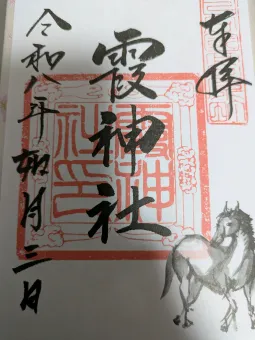 奉拝
霞神社
霞神社印
令和八年如月三日